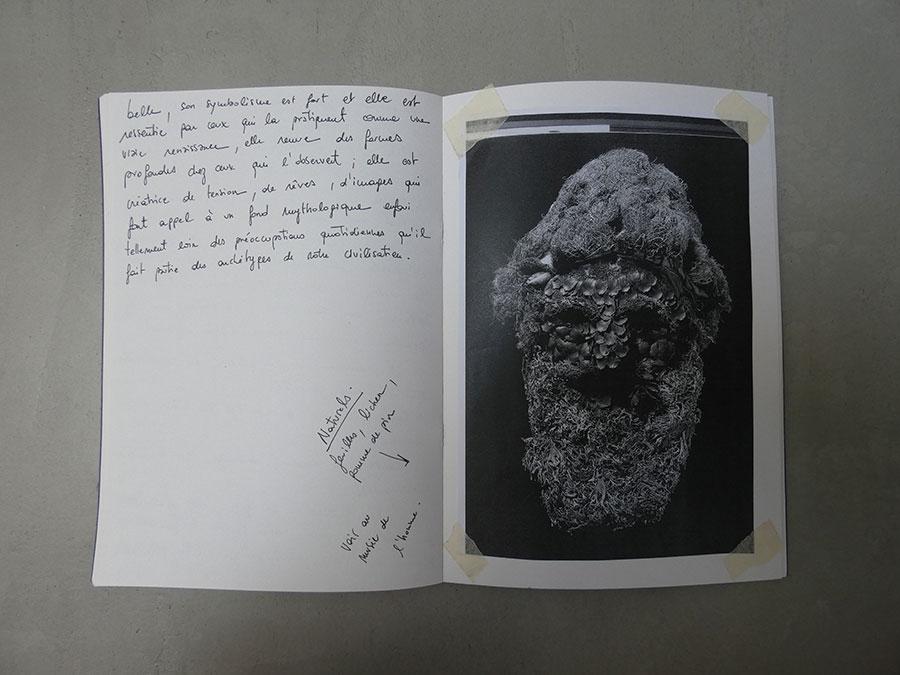 belle, son symbolisme est fort et elle est
ressentie par ceux qui la pratiquent comme une
vraie renaissance, elle remue des forces
profondes chez ceux qui l'observent ; elle est
créatrice de tension, de rêves, d'images qui
font appel à un fond mythologique enfoui
tellement loin des préoccupations quotidiennes qu'il
fait partie des archétypes de notre civilisation.
Naturels.
feuilles, lichen,
pomme de pin
Voir au
musée de
l'homme.